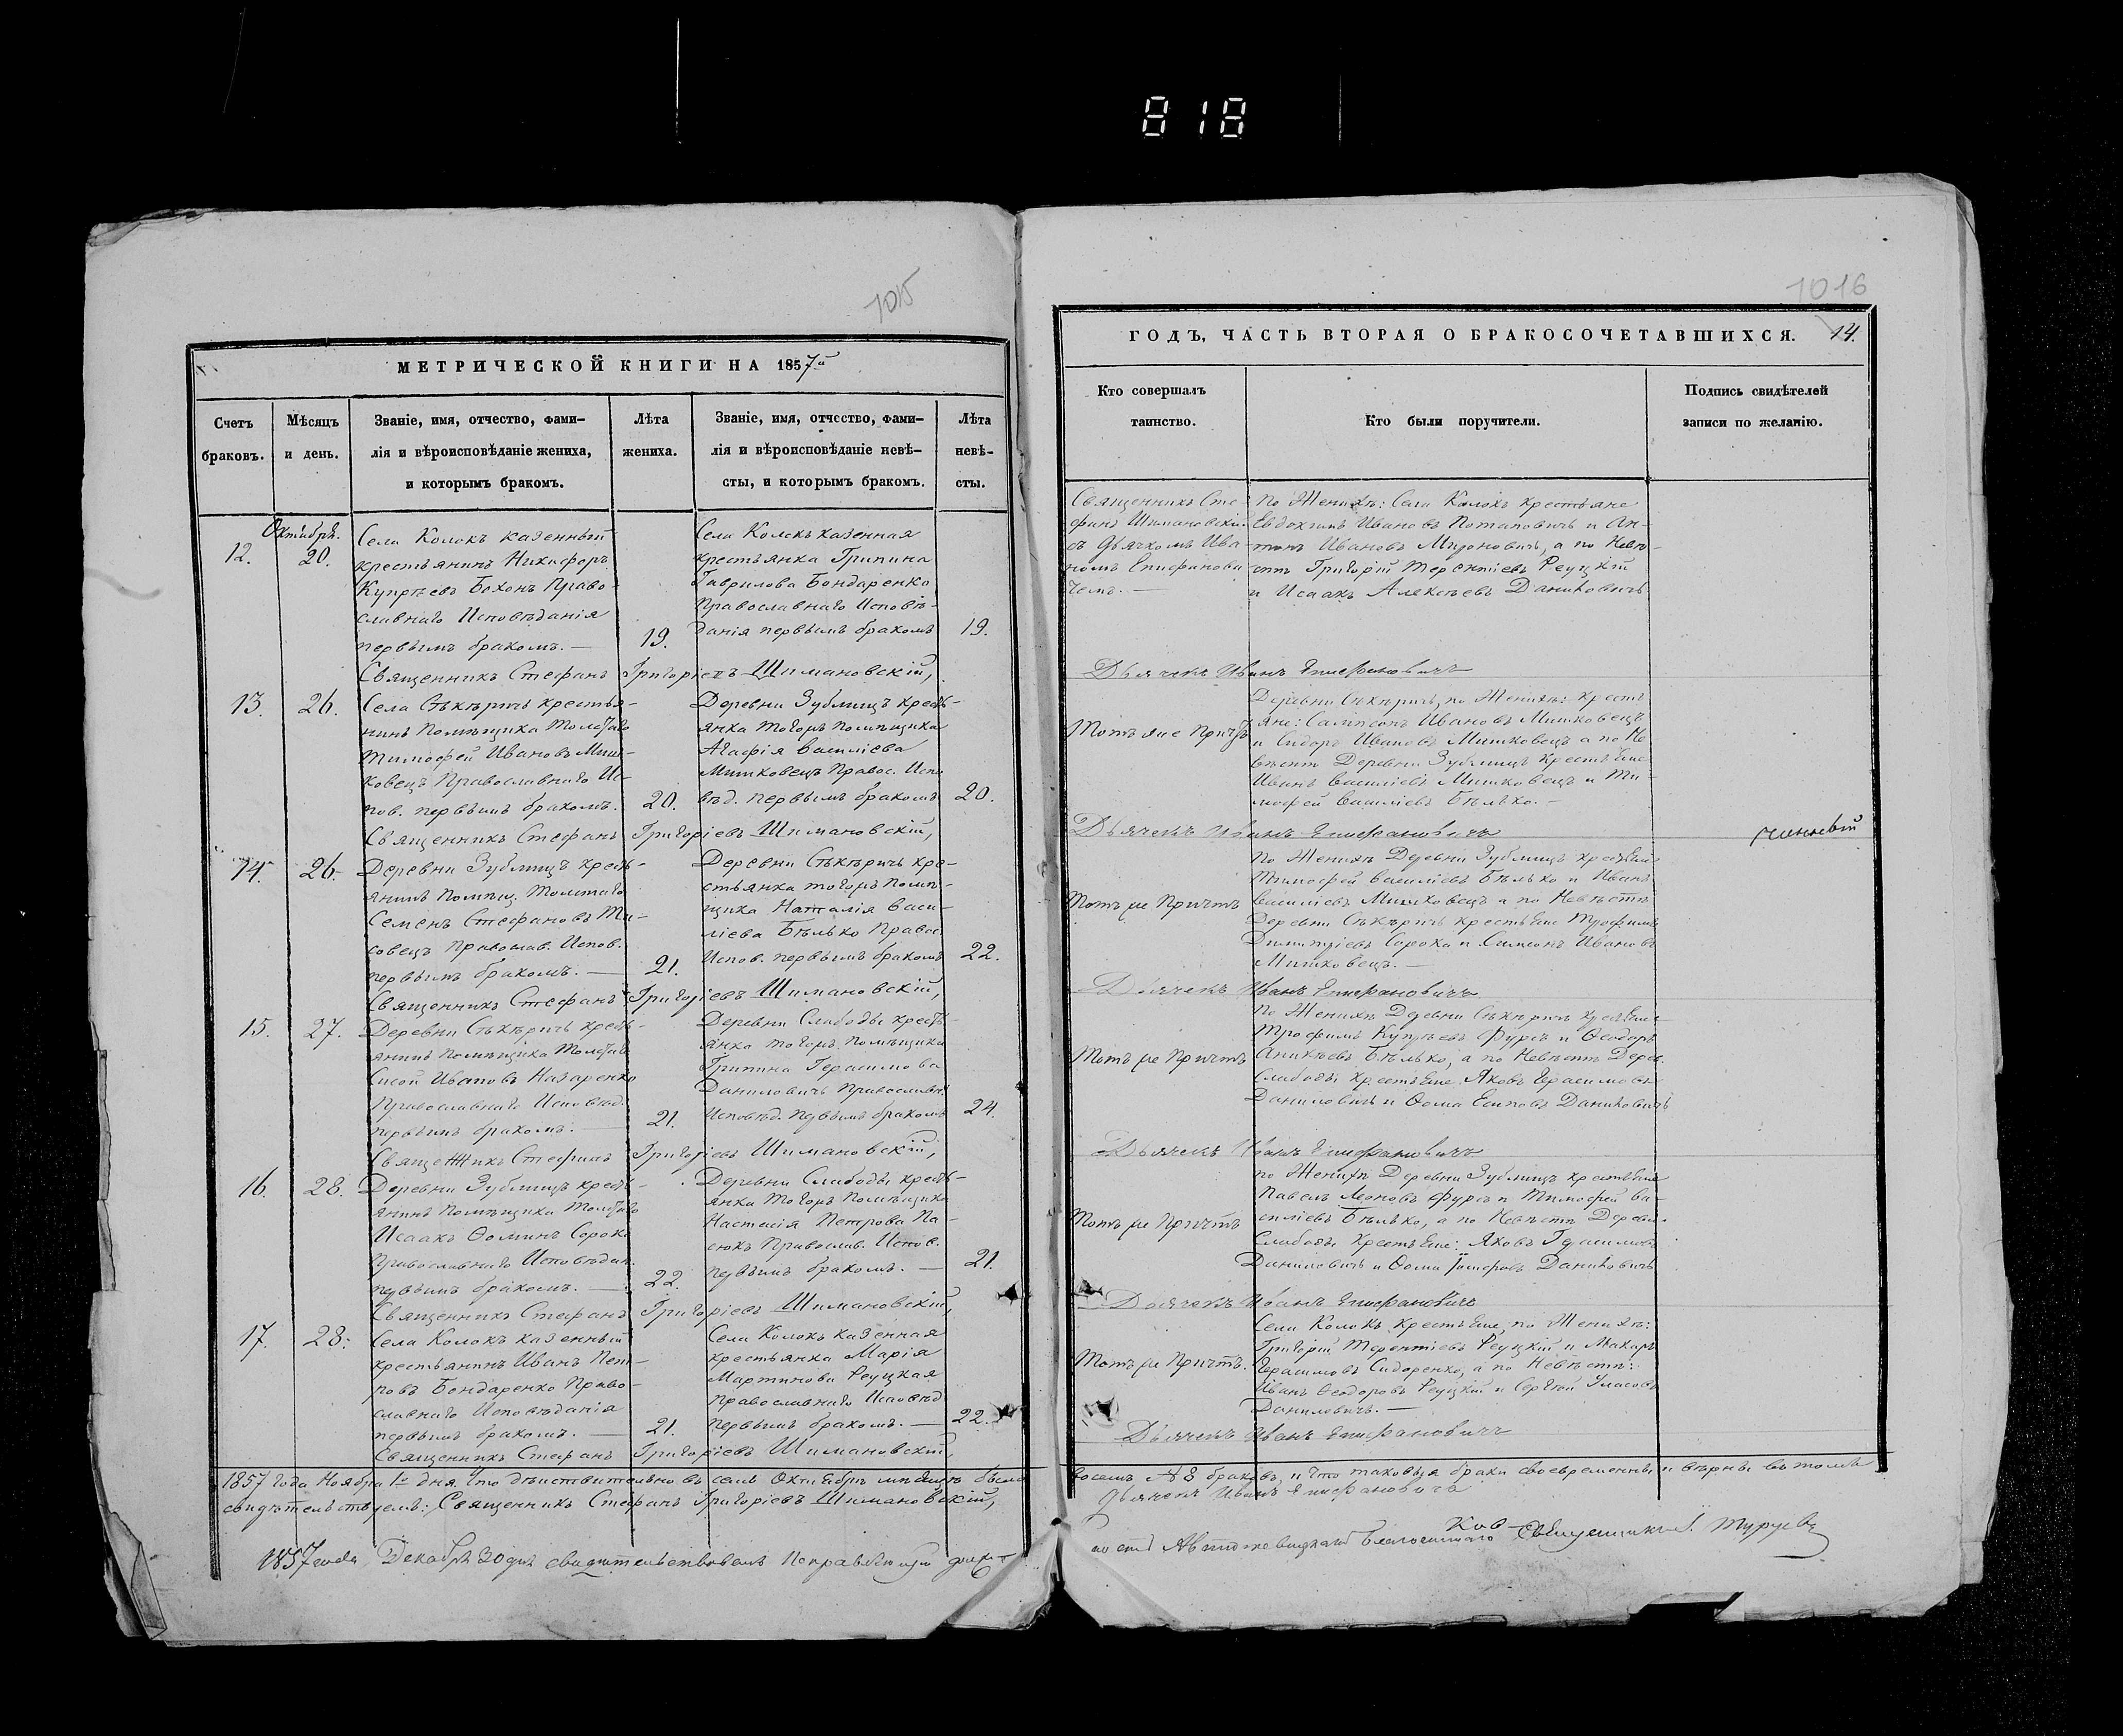 818
1015
МЕТРИЧЕСКОЙ КНИГИ НА 1857й
Счетъ браковъ.
Мѣсяцъ и день.
Званіе, имя, отчество, фами-
лія и вѣроисповѣданіе жениха,
и которымъ бракомъ.
Лѣта жениха.
Званіе, имя, отчество, фами-
лія и вѣроисповѣданіе невѣ-
сты, и которымъ бракомъ.
Лѣта невѣ-
сты.
12.
Октябрь.
20.
Села Колокъ казенный
крестьянинъ Никифоръ
Купріевъ Бохонъ Право-
славнаго Исповѣданія
первымъ бракомъ. —
19.
Села Колокъ казенная
крестьянка Грипина
Гаврилова Бондаренко
Православнаго Исповѣ-
данія первымъ бракомъ
19.
Священникъ Стефанъ Григоріевъ Шимановскій,
13.
26.
Села Сѣкѣричъ крестья-
нинъ Помѣщика Толстаго
Тимофей Ивановъ Миш-
ковецъ Православнаго Ис-
пов. первымъ бракомъ.
20.
Деревни Зублищъ кресть-
янка тогожъ помѣщика
Агафія Василіева
Мишковецъ Правос. Испо
вѣд. первымъ бракомъ
20.
Священникъ Стефанъ Григоріевъ Шимановскій,
14.
26.
Деревни Зублищъ кресть-
янинъ Помѣщ. Толстаго
Семенъ Стефановъ Ти-
совецъ Православ. Испов.
первымъ бракомъ. —
21.
Деревни Сѣкѣричъ кре-
стьянка тогожъ помѣ-
щика Наталія Васи-
ліева Бѣлько Правос.
Испов. первымъ бракомъ
22.
Священникъ Стефанъ Григоріевъ Шимановскій,
15.
27.
Деревни Сѣкѣричъ кресть-
янинъ помѣщика Толстаго
Сисой Ивановъ Назаренко
Православнаго Исповѣд.
первымъ бракомъ. —
21.
Деревни Слободы кресть-
янка тогожъ Помѣщика
Грипина Герасимова
Даниловичъ Православн.
Исповѣд. первымъ бракомъ
24.
Священникъ Стефанъ Григоріевъ Шимановскій,
16.
28.
Деревни Зублищъ кресть-
янинъ Помѣщика Толстаго
Исаакъ Ѳоминъ Сорока
Православнаго Исповѣдан.
первымъ бракомъ. —
22.
Деревни Слободы кресть-
янка тогожъ Помѣщика
Настасія Петрова Па-
сюкъ Православ. Испов.
первымъ бракомъ. —
21.
Священникъ Стефанъ Григоріевъ Шимановскій,
17.
28.
Села Колокъ казенный
крестьянинъ Иванъ Пет-
ровъ Бондаренко Право-
славнаго Исповѣданія
первымъ бракомъ. —
21.
Села Колокъ казенная
крестьянка Марія
Мартинова Реуцкая
Православнаго Исповѣд
первымъ бракомъ. —
22.
Священникъ Стефанъ Григоріевъ Шимановскій,
1857 года Ноября 1го дня. Что дѣйствительно въ семъ Октябрѣ мѣсяцѣ было
свидѣтельствуемъ: Священникъ Стефанъ Григоріевъ Шимановскій,
1857 года, Декабря 30 дня свидѣтельствовалъ
1016
ГОДЪ, ЧАСТЬ ВТОРАЯ О БРАКОСОЧЕТАВШИХСЯ. 14.
Кто совершалъ
таинство.
Кто были поручители.
Подпись свидѣтелей
записи по желанію.
Священникъ Сте-
фанъ Шимановскій
съ дьячкомъ Ива-
номъ Епифанови-
чемъ. —
По Женихѣ: Села Колокъ крестьяне
Евдокимъ Ивановъ Потаповичъ и Ан-
тонъ Ивановъ Мироновичъ, а по Невѣ-
стѣ Григорій Терентіевъ Реуцкій
и Исаакъ Алексѣевъ Даниловичъ
Дьячекъ Иванъ Епифановичъ
Тотъ же Причтъ
Деревни Сѣкѣричъ, по Женихѣ: кресть
яне: Сампсонъ Ивановъ Мишковецъ
и Сидоръ Ивановъ Мишковецъ а по Не
вѣстѣ Деревни Зублищъ крестьяне
Иванъ Василіевъ Мишковецъ и Ти-
мофей Василіевъ Бѣлько. —
Дьячекъ Иванъ Епифановичъ
Тотъ же Причтъ
По Женихѣ Деревни Зублищъ крестьяне
Тимофей Василіевъ Бѣлько и Иванъ
Василіевъ Мишковецъ а по Невѣстѣ
Деревни Сѣкѣричъ крестьяне Трофимъ
Димитріевъ Сорока и Симеонъ Ивановъ
Мишковецъ. —
Дьячекъ Иванъ Епифановичъ
Тотъ же Причтъ
По Женихѣ Деревни Сѣкѣричъ крестьяне
Трофимъ Купріевъ Фурсъ и Ѳеодоръ
Аникіевъ Бѣлько, а по Невѣстѣ Дерев.
Слободы крестьяне Яковъ Герасимовъ
Даниловичъ и Ѳома Есиповъ Даниловичъ
Дьячекъ Иванъ Епифановичъ
Тотъ же Причтъ
По Женихѣ Деревни Зублищъ крестьяне
Павелъ Леоновъ Фурсъ и Тимофей Ва-
силіевъ Бѣлько, а по Невѣстѣ Деревн.
Слободы крестьяне: Яковъ Герасимовъ
Даниловичъ и Ѳома Іосифовъ Даниловичъ
Дьячекъ Иванъ Епифановичъ
Тотъ же Причтъ.
Села Колокъ крестьяне, по Женихѣ:
Григорій Терентіевъ Реуцкій и Макаръ
Герасимовъ Сидоренко, а по Невѣстѣ:
Иванъ Ѳеодоровъ Реуцкій и Сергѣй Уласовъ
Даниловичъ. —
Дьячекъ Иванъ Епифановичъ
восемь № 8 браковъ, и что таковыя браки своевременны и вѣрны въ томъ
Дьячекъ Иванъ Епифановичъ
Благочиннаго Священникъ